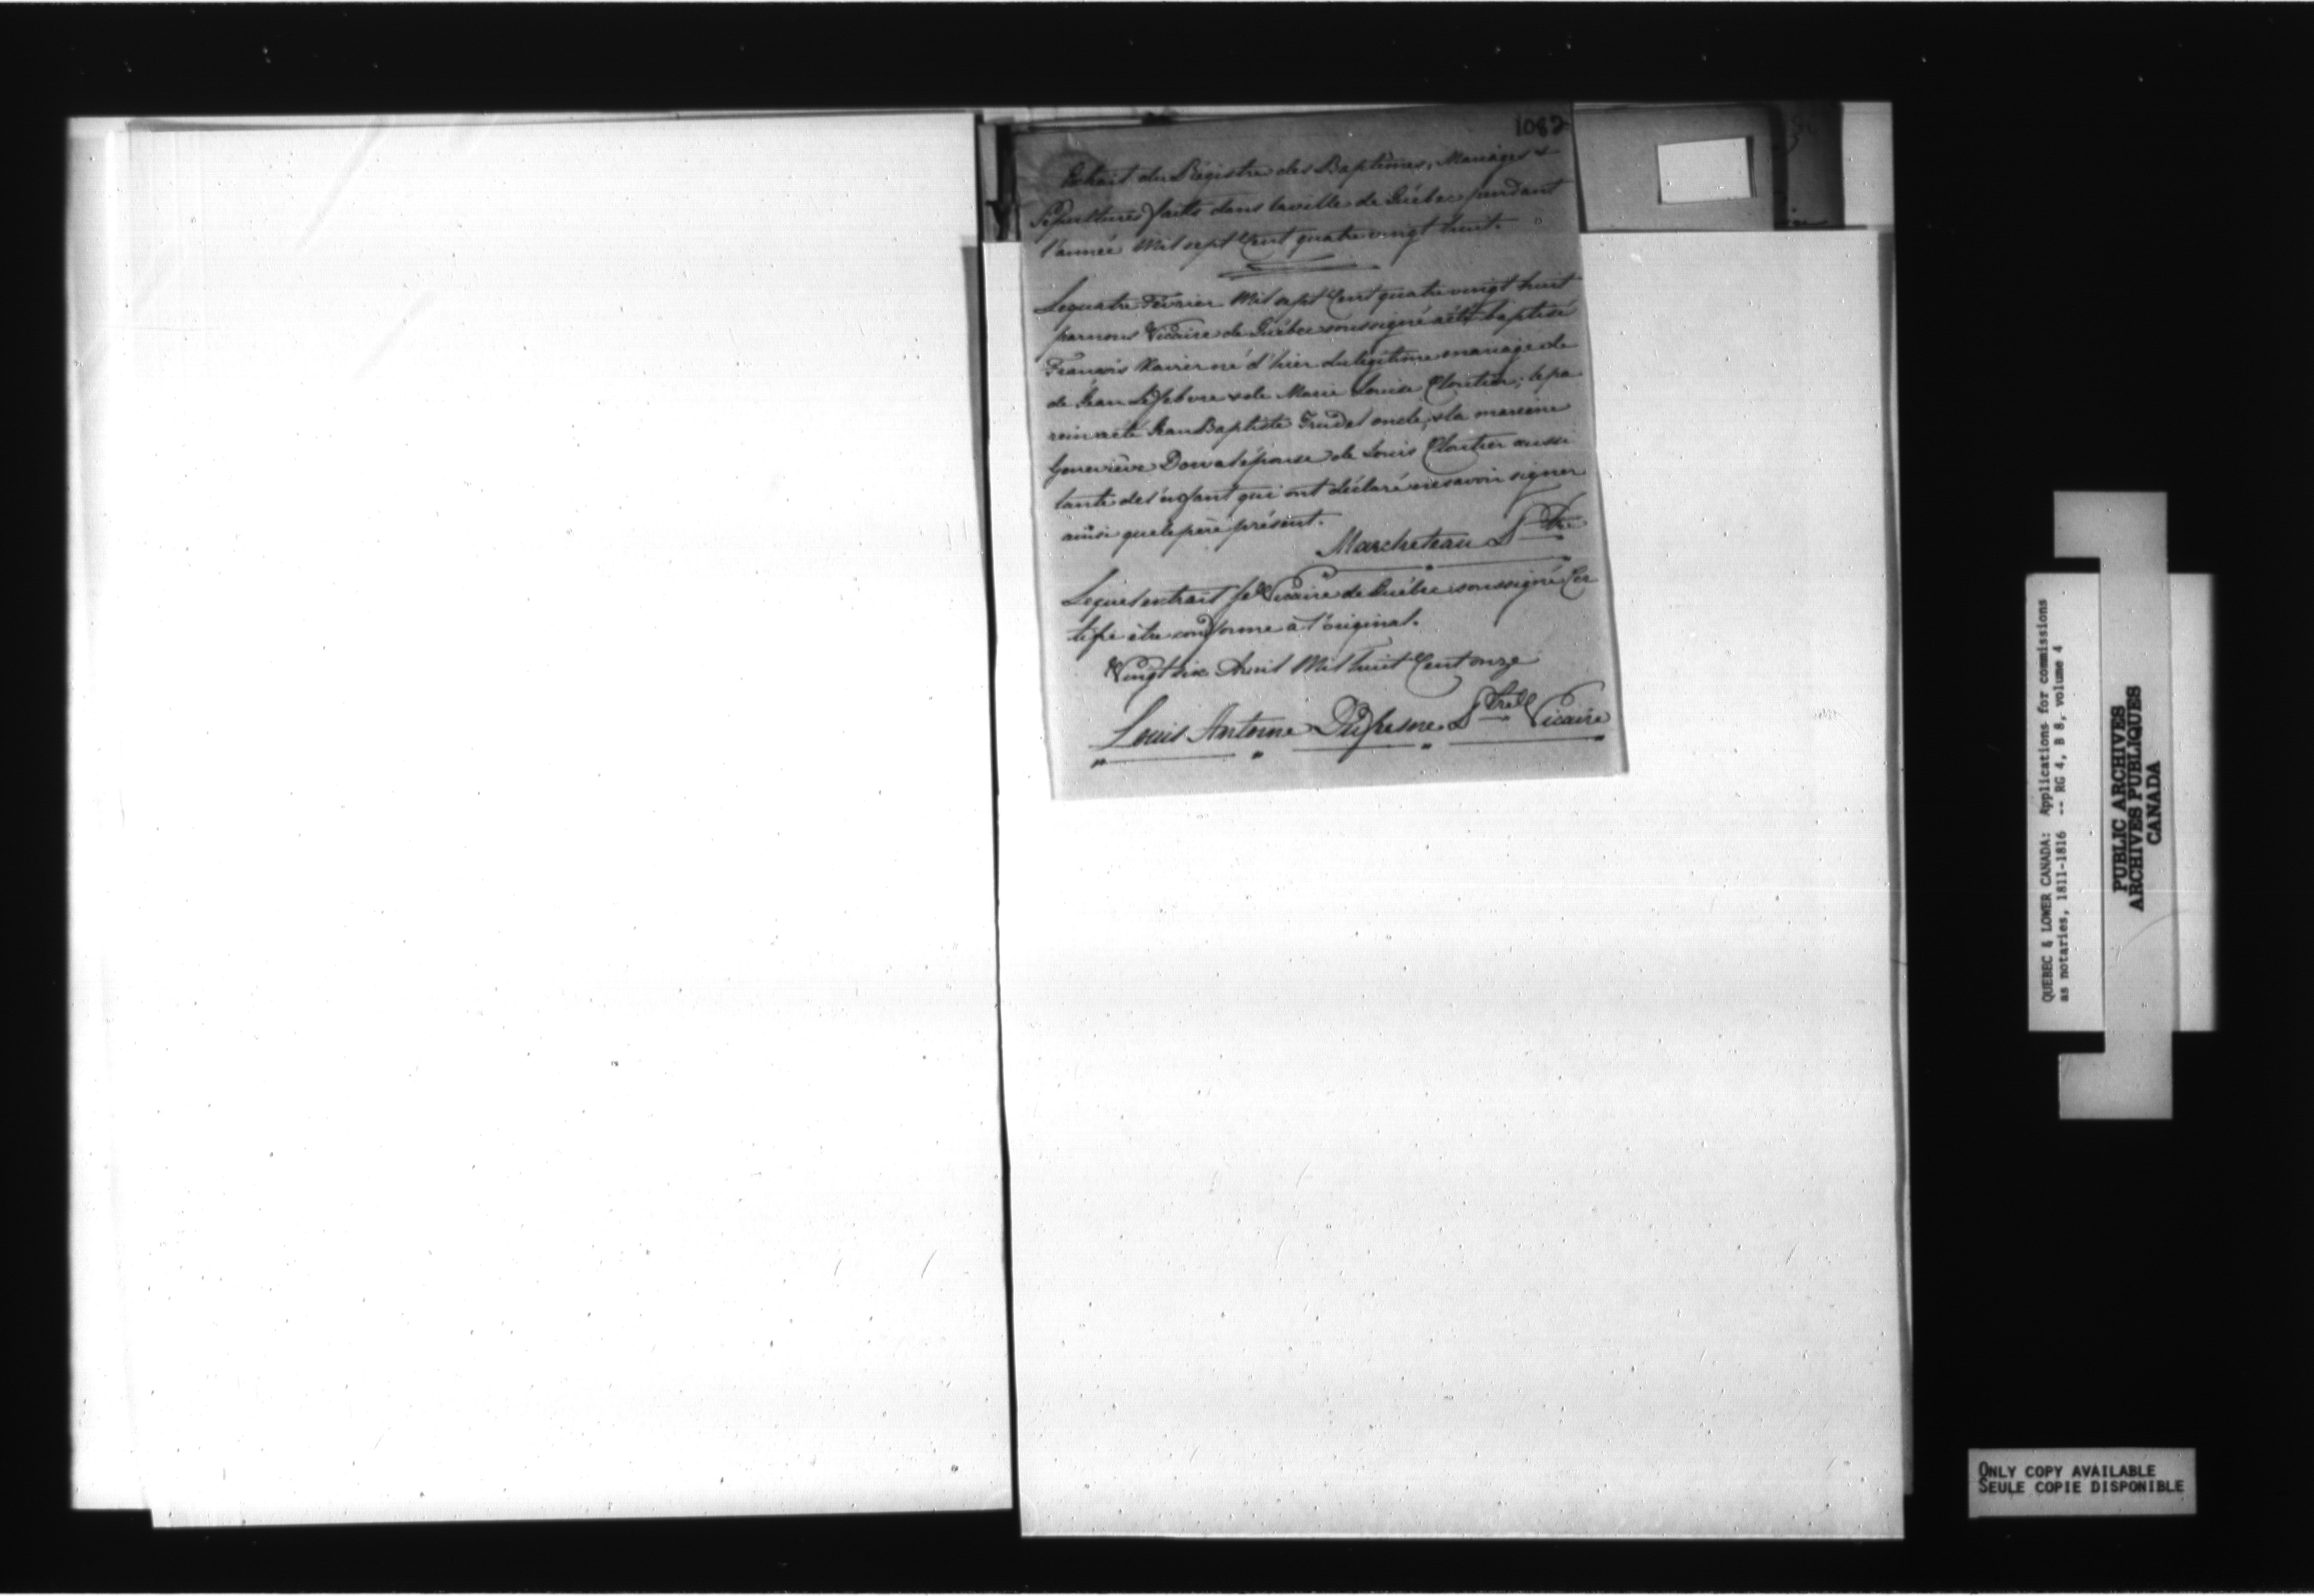 1082
Extrait du Régistre des Baptêmes, Mariages &
Sépultures faits dans la ville de Québec pendant
l'année Mil sept Cent quatre vingt huit.
Le quatre Février Mil sept Cent quatre vingt huit
par nous Vicaire de Québec soussigné a été baptisé
François Xavier né d'hier du légitime mariage de
de Jean Lefebvre & de Marie Louise Cloutier; le pa
rein a été Jean Baptiste Trudel oncle, & la mareine
Geneviève Dorval épouse de Louis Cloutier aussi
tante de l'enfant qui ont déclaré ne savoir signer
ainsi que le père présent.
Marcheteau Ptre
Lequel extrait je Vicaire de Québec soussigné Cer
tifie être conforme à l'original.
Vingt six Avril Mil huit Cent onze
Louis Antoine Dufresne Ptre Vicaire
QUEBEC & LOWER CANADA: Applications for commissions
as notaries, 1811-1816 -- RG 4, B 8, volume 4
PUBLIC ARCHIVES
ARCHIVES PUBLIQUES
CANADA
ONLY COPY AVAILABLE
SEULE COPIE DISPONIBLE